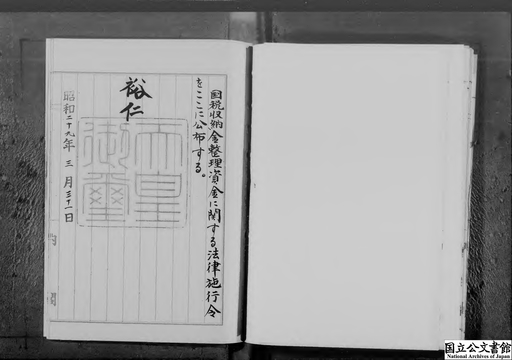 国税収納金整理資金に関する法律施行令
をここに公布する。
裕仁
天皇
御璽
昭和二十九年三月三十一日
国立公文書館
National Archives of Japan